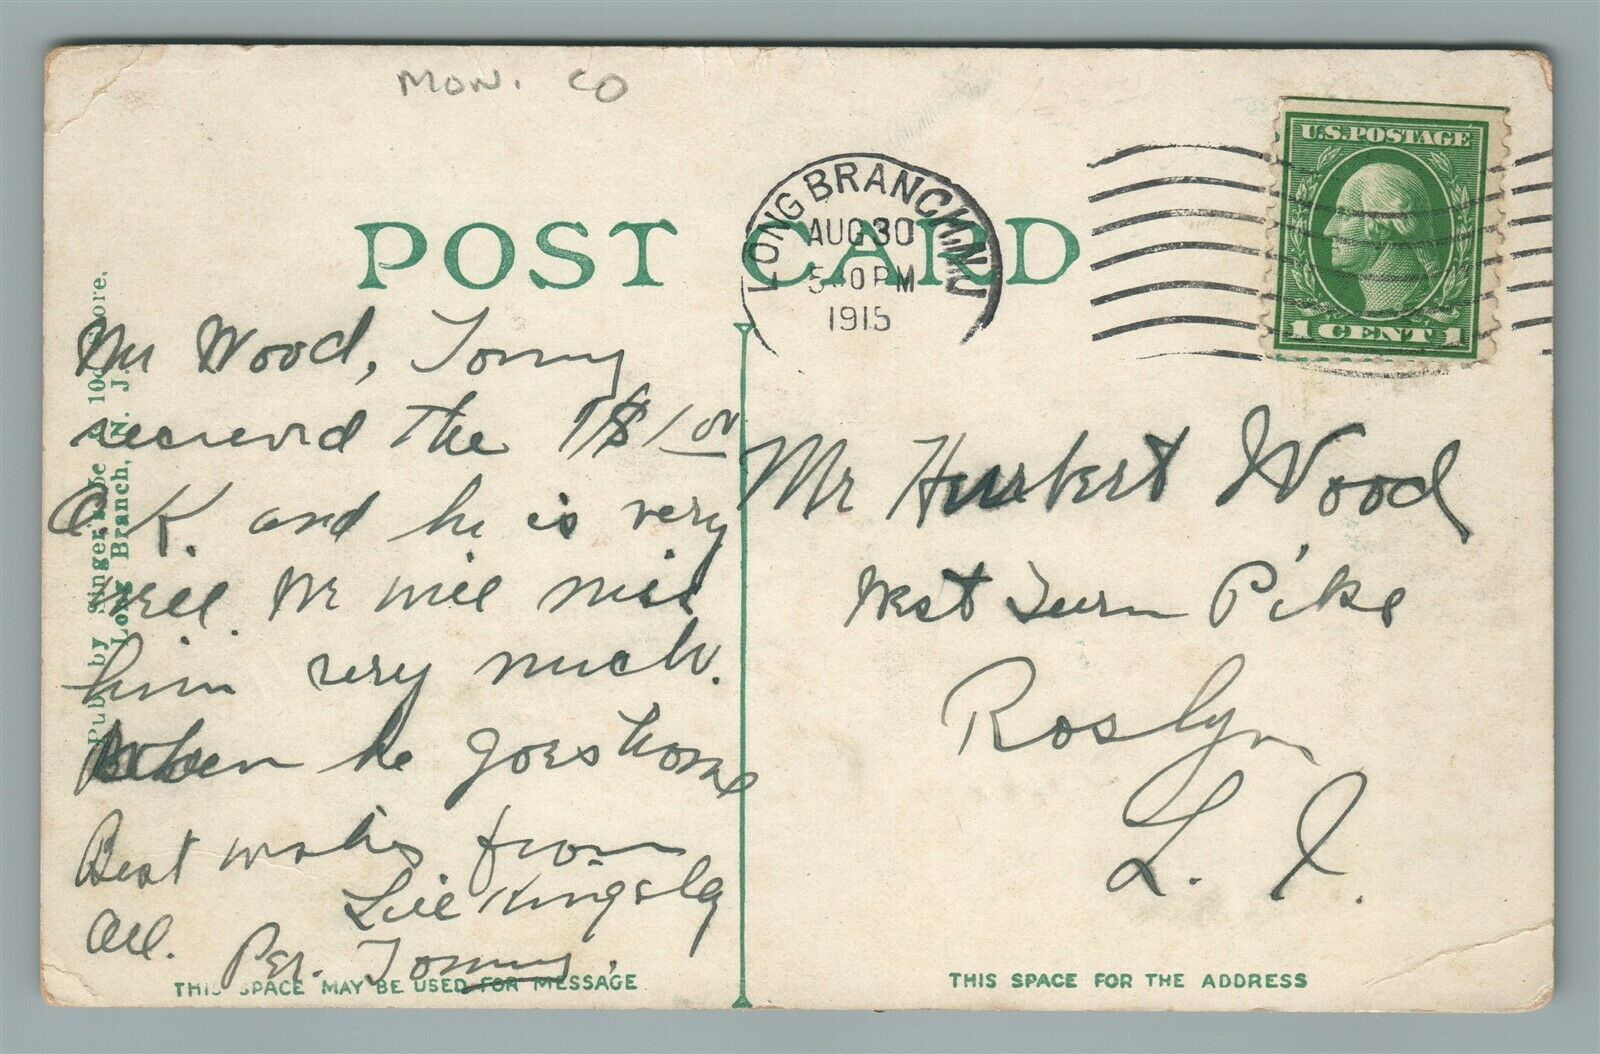 MON. CO
POST CARD
LONG BRANCH, N.J.
AUG 30
PM
1915
U.S. POSTAGE
1 CENT 1
Pub. by Singer's 5c & 10c Store.
Long Branch, N. J.
Mr Wood, Tommy
received the $1.00
O.K. and he is very
well. We will miss
him very much.
When he goes home
Best wishes from
All. Lill Kingsley
Per. Tommy.
Mr Herbert Wood
West Turn Pike
Roslyn
L. I.
THIS SPACE MAY BE USED FOR MESSAGE
THIS SPACE FOR THE ADDRESS